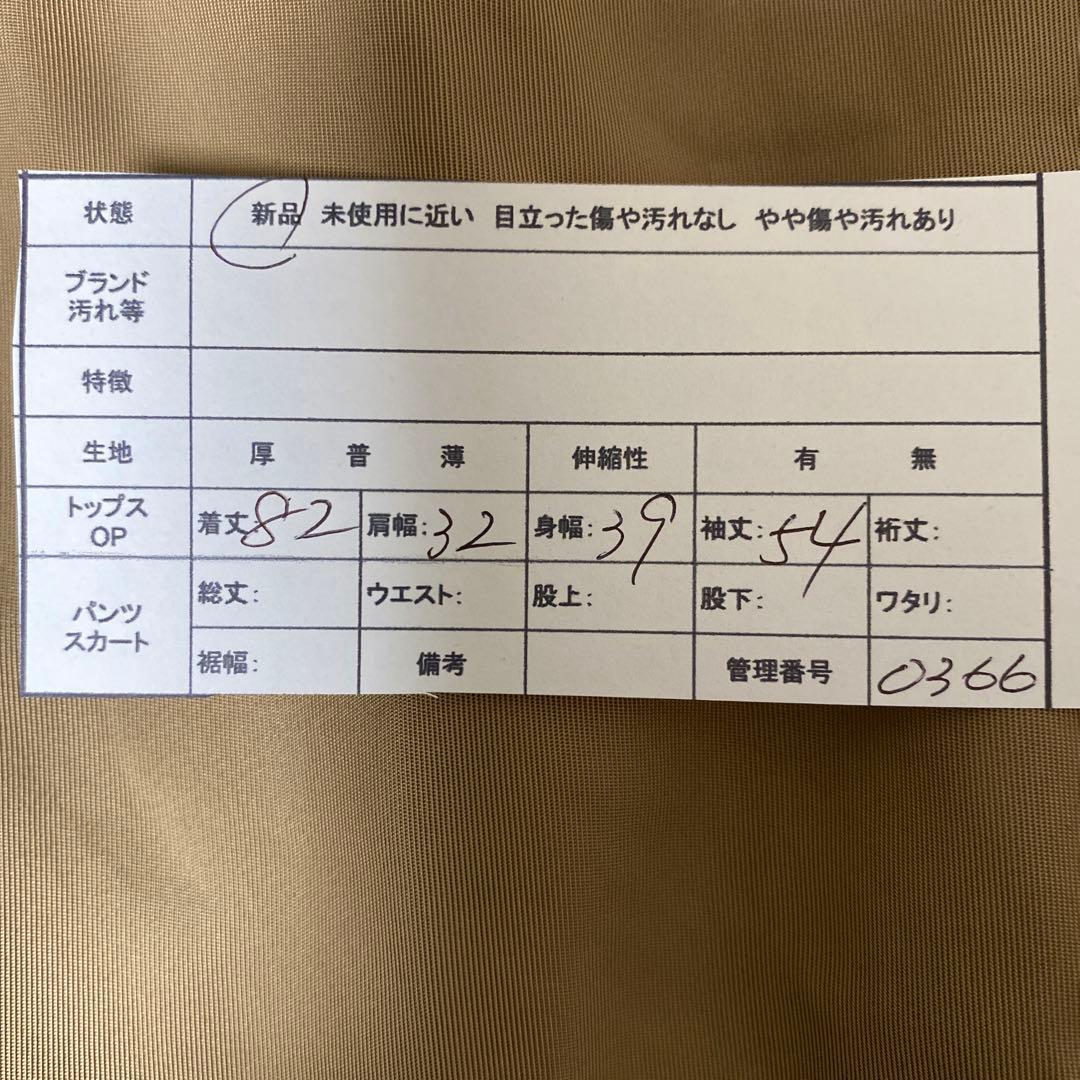 状態 新品 未使用に近い 目立った傷や汚れなし やや傷や汚れあり
ブランド
汚れ等
特徴
生地 厚 普 薄 伸縮性 有 無
トップス
OP
着丈:82 肩幅:32 身幅:39 袖丈:54 裄丈:
パンツ
スカート
総丈: ウエスト: 股上: 股下: ワタリ:
裾幅: 備考 管理番号 0366